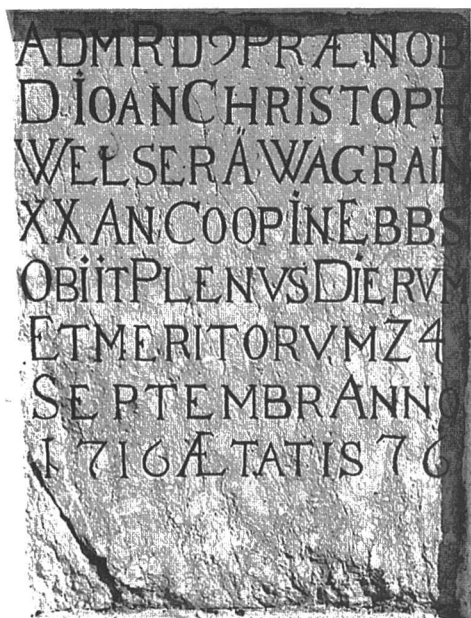 ADM RD9 PRÆNOB
D IOAN CHRISTOPH
WELSER Ä WAGRAIN
XX AN COOP IN EBBS
OBIIT PLENVS DIERVM
ET MERITORVM Z4
SEPTEMBR ANNO
1716 ÆTATIS 76